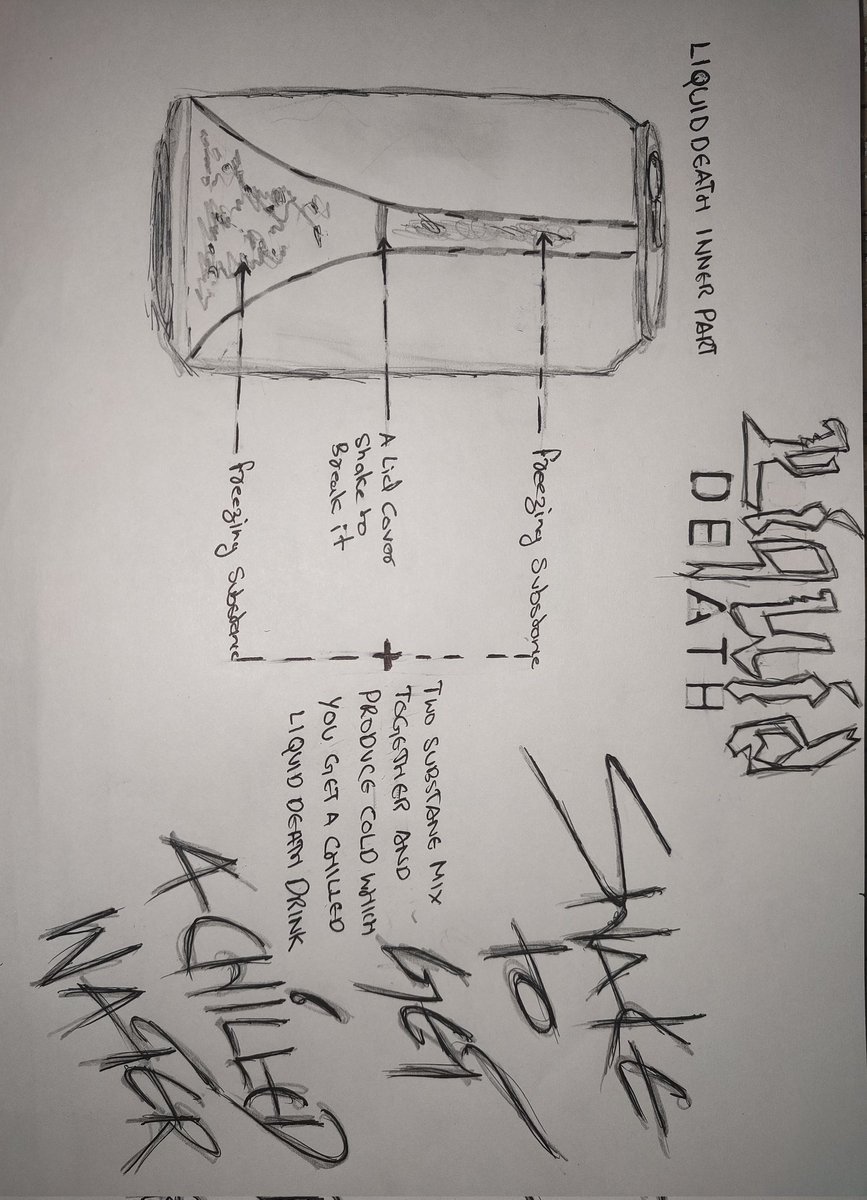 LIQUID DEATH INNER PART
LIQUID
DEATH
Freezing Substane
A Lid Cover
Shake to
Break it
Freezing Substane
+
TWO SUBSTANE MIX
TOGETHER AND
PRODUCE COLD WHICH
YOU GET A CHILLED
LIQUID DEATH DRINK
SHAKE
TO
GET
A CHILLED
WATER